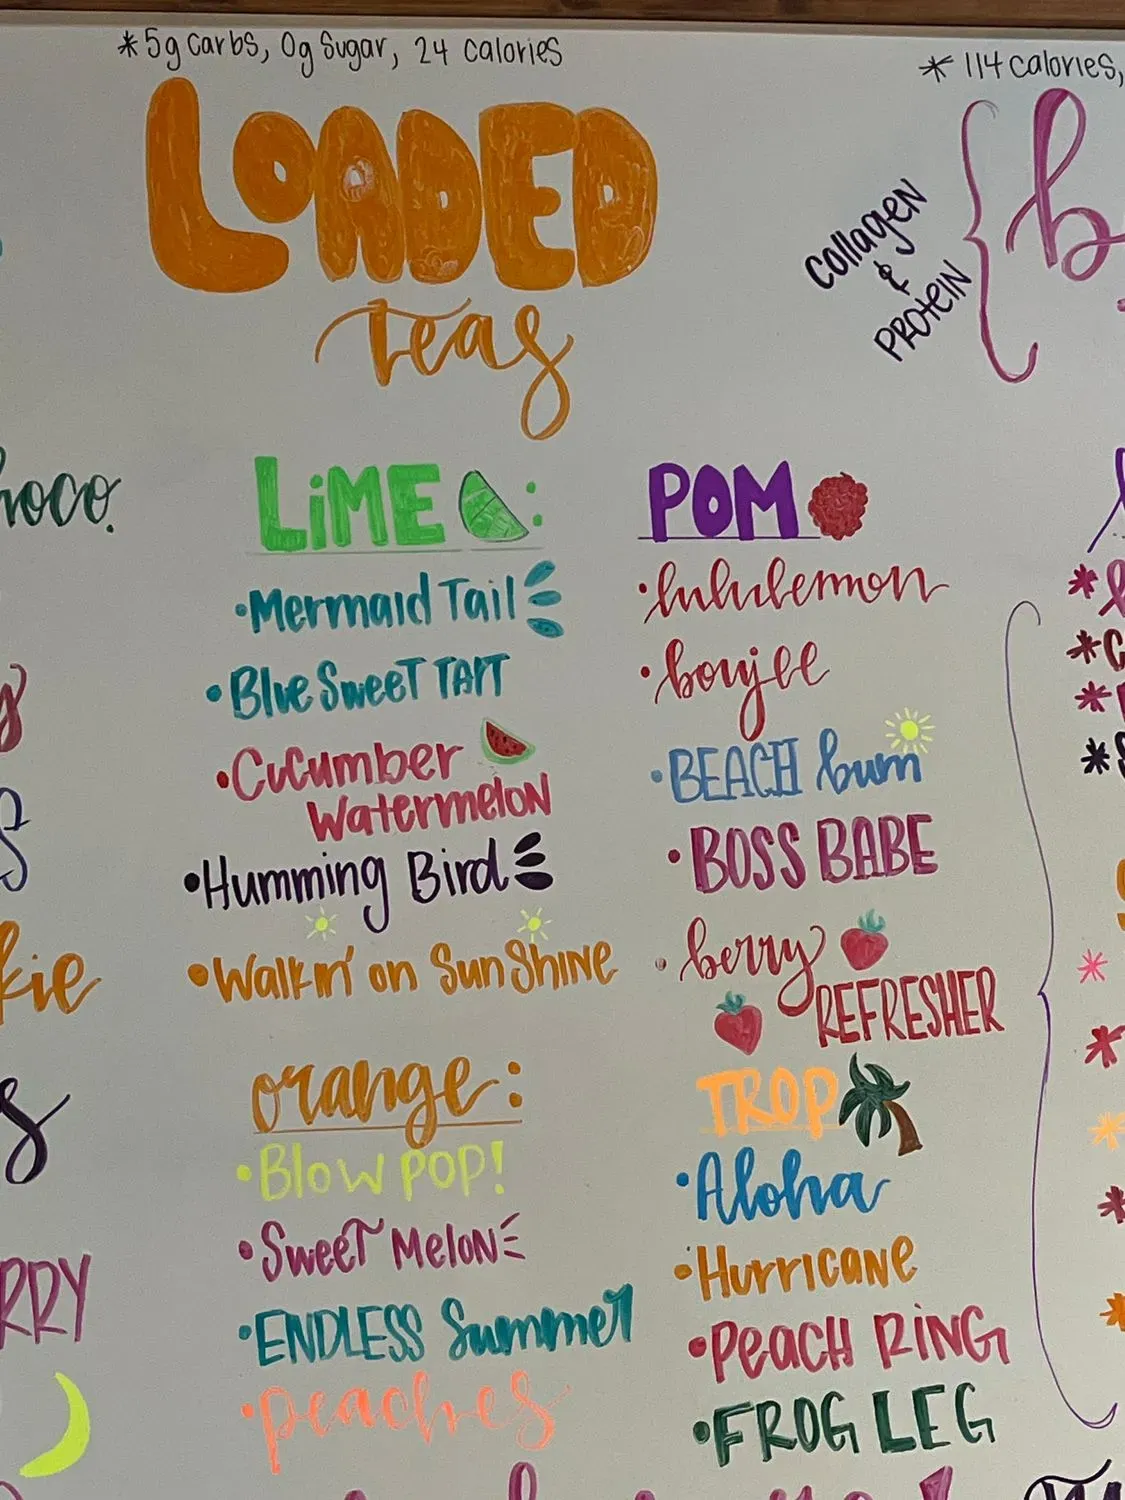 *5g carbs, 0g Sugar, 24 calories
LOADED
teas
LiME:
•Mermaid Tail
•Blue Sweet TART
•Cucumber
Watermelon
•Humming Bird
•Walkin' on SunShine
orange:
•Blow POP!
•Sweet Melon
•ENDLESS Summer
•peaches
POM
•lululemon
•boujee
•BEACH bum
•BOSS BABE
•berry
REFRESHER
TROP
•Aloha
•Hurricane
•PEACH RiNG
•FROG LEG
* 114 calories,
Collagen
&
PROtEiN